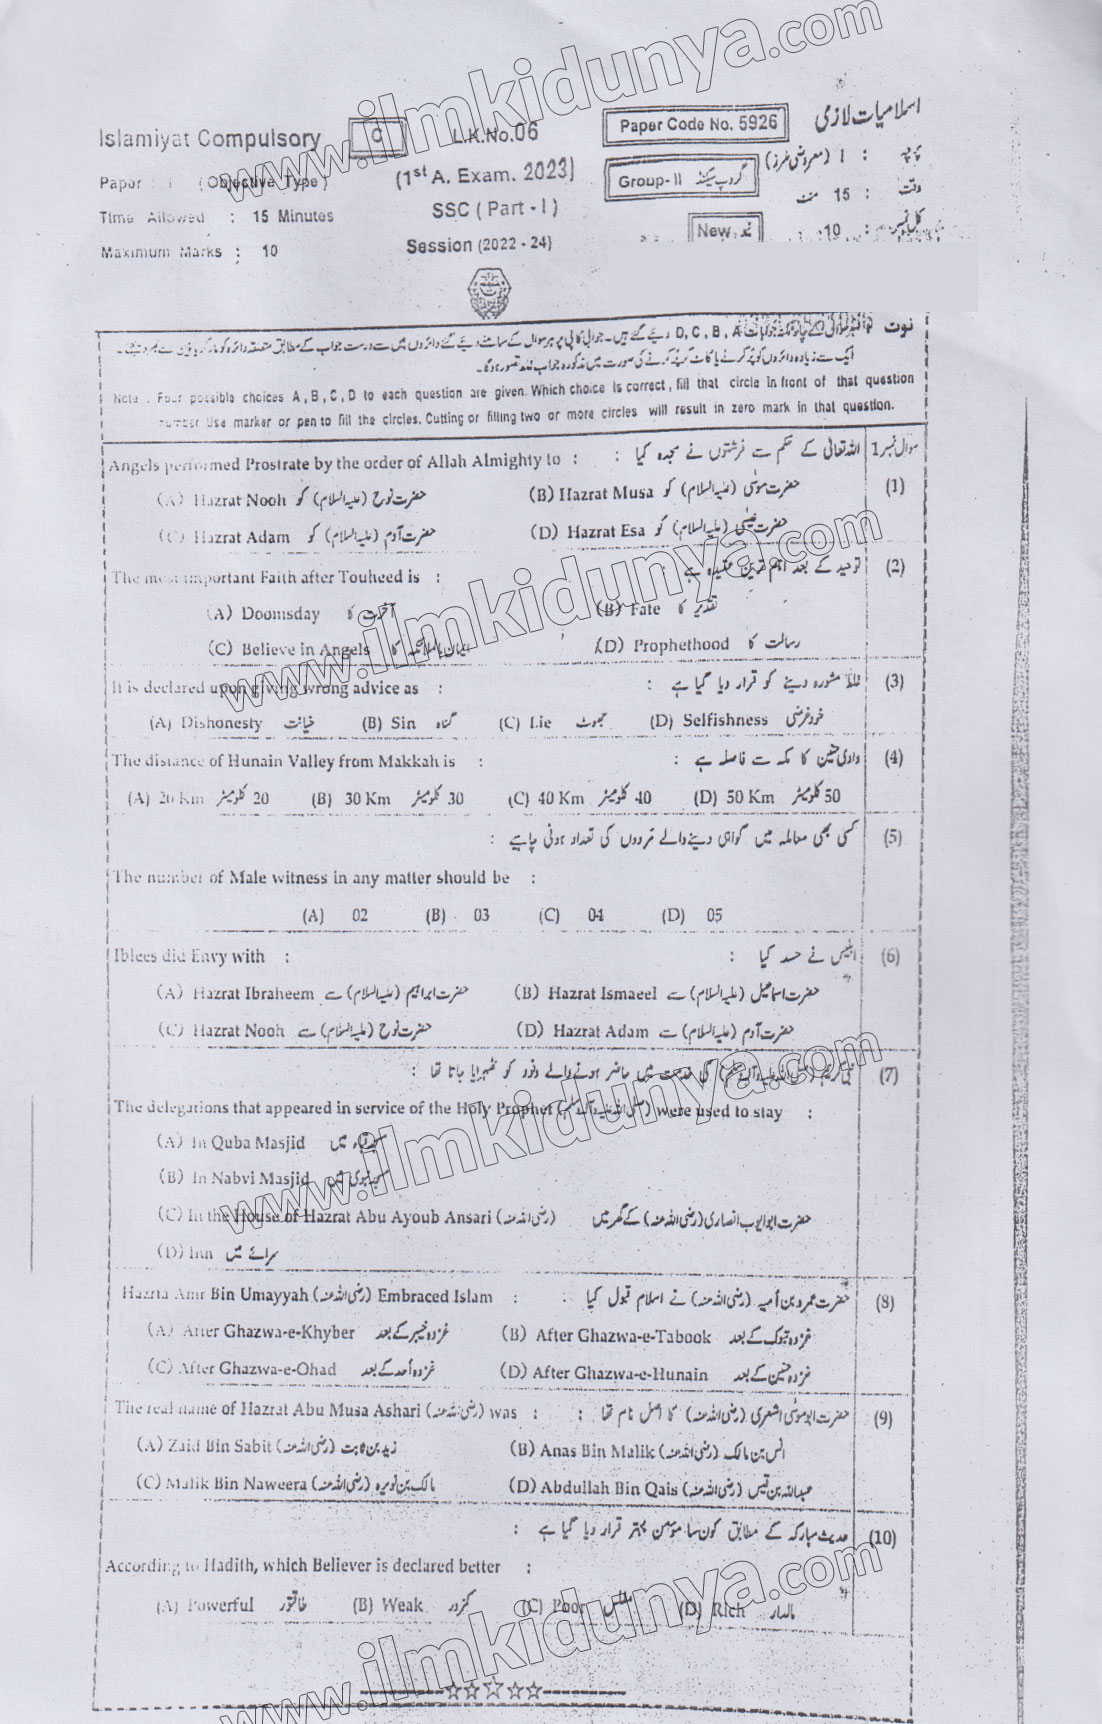 www.ilmkidunya.com
اسلامیات لازمی
Islamiyat Compulsory C L.K.No.06 Paper Code No. 5926
Paper : I (Objective Type) (1st A. Exam. 2023) Group-II گروپ سیکنڈ پرچہ : I (معروضی طرز)
Time Allowed : 15 Minutes SSC (Part - I) وقت : 15 منٹ
Maximum Marks : 10 Session (2022 - 24) New کل نمبر : 10
نوت
ایک سے زیادہ دائروں کو پُر کرنے یا کاٹ کر پُر کرنے کی صورت میں مذکورہ جواب غلط تصور ہوگا۔
Note : Four possible choices A , B , C , D to each question are given. Which choice is correct , fill that circle in front of that question
number Use marker or pen to fill the circles. Cutting or filling two or more circles will result in zero mark in that question.
سوال نمبر 1 اللہ تعالیٰ کے حکم سے فرشتوں نے سجدہ کیا :
Angels performed Prostrate by the order of Allah Almighty to :
(1)
(A) Hazrat Nooh حضرت نوح (علیہ السلام) کو (B) Hazrat Musa حضرت موسیٰ (علیہ السلام) کو
(C) Hazrat Adam حضرت آدم (علیہ السلام) کو (D) Hazrat Esa حضرت عیسیٰ (علیہ السلام) کو
(2) توحید کے بعد اہم ترین عقیدہ ہے
The most important Faith after Touheed is :
(A) Doomsday آخرت کا (B) Fate تقدیر کا
(C) Believe in Angels ایمان بالملائکہ کا (D) Prophethood رسالت کا
(3) غلط مشورہ دینے کو قرار دیا گیا ہے :
It is declared upon giving wrong advice as :
(A) Dishonesty خیانت (B) Sin گناہ (C) Lie جھوٹ (D) Selfishness خود غرضی
(4) وادی حنین کا مکہ سے فاصلہ ہے :
The distance of Hunain Valley from Makkah is :
(A) 20 Km 20 کلومیٹر (B) 30 Km 30 کلومیٹر (C) 40 Km 40 کلومیٹر (D) 50 Km 50 کلومیٹر
(5) کسی بھی معاملہ میں گواہی دینے والے مردوں کی تعداد ہونی چاہیے :
The number of Male witness in any matter should be :
(A) 02 (B) 03 (C) 04 (D) 05
(6) ابلیس نے حسد کیا :
Iblees did Envy with :
(A) Hazrat Ibraheem حضرت ابراہیم (علیہ السلام) سے (B) Hazrat Ismaeel حضرت اسماعیل (علیہ السلام) سے
(C) Hazrat Nooh حضرت نوح (علیہ السلام) سے (D) Hazrat Adam حضرت آدم (علیہ السلام) سے
www.ilmkidunya.com
(7) کی خدمت میں حاضر ہونے والے وفود کو ٹھہرایا جاتا تھا :
The delegations that appeared in service of the Holy Prophet were used to stay :
(A) In Quba Masjid مسجد قباء میں
(B) In Nabvi Masjid مسجد نبوی میں
(C) In the House of Hazrat Abu Ayoub Ansari (رضی اللہ عنہ) حضرت ابو ایوب انصاری (رضی اللہ عنہ) کے گھر میں
(D) Inn سرائے میں
(8) حضرت عمرو بن امیہ (رضی اللہ عنہ) نے اسلام قبول کیا :
Hazrta Amr Bin Umayyah (رضی اللہ عنہ) Embraced Islam :
(A) After Ghazwa-e-Khyber غزوہ خیبر کے بعد (B) After Ghazwa-e-Tabook غزوہ تبوک کے بعد
(C) After Ghazwa-e-Ohad غزوہ احد کے بعد (D) After Ghazwa-e-Hunain غزوہ حنین کے بعد
(9) حضرت ابو موسیٰ اشعری (رضی اللہ عنہ) کا اصل نام تھا :
The real name of Hazrat Abu Musa Ashari (رضی اللہ عنہ) was :
(A) Zaid Bin Sabit (رضی اللہ عنہ) زید بن ثابت (B) Anas Bin Malik (رضی اللہ عنہ) انس بن مالک
(C) Malik Bin Naweera (رضی اللہ عنہ) مالک بن نویرہ (D) Abdullah Bin Qais (رضی اللہ عنہ) عبداللہ بن قیس
(10) حدیث مبارکہ کے مطابق کون سا مومن بہتر قرار دیا گیا ہے :
According to Hadith, which Believer is declared better :
(A) Powerful طاقتور (B) Weak کمزور (C) Poor مفلس (D) Rich مالدار
www.ilmkidunya.com